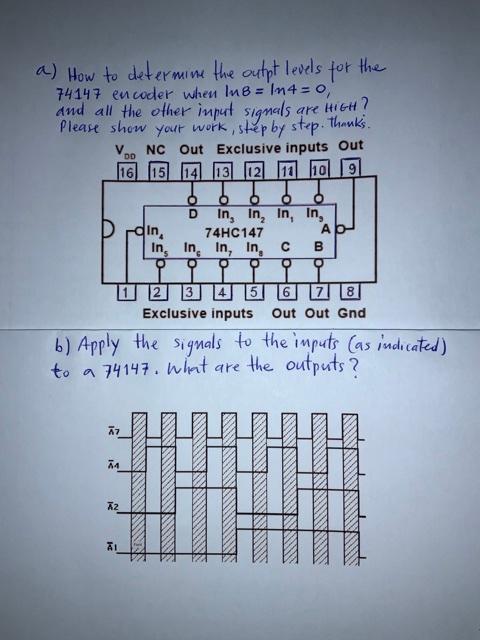 a) How to determine the outpt levels for the
74147 encoder when In8 = In4 = 0,
and all the other input signals are HIGH?
Please show your work, step by step. Thanks.
VDD NC Out Exclusive inputs Out
16 15 14 13 12 11 10 9
D In3 In2 In1 In9
In4 74HC147 A
In5 In6 In7 In8 C B
1 2 3 4 5 6 7 8
Exclusive inputs Out Out Gnd
b) Apply the signals to the inputs (as indicated)
to a 74147. What are the outputs?
A̅7
A̅4
A̅2
A̅1